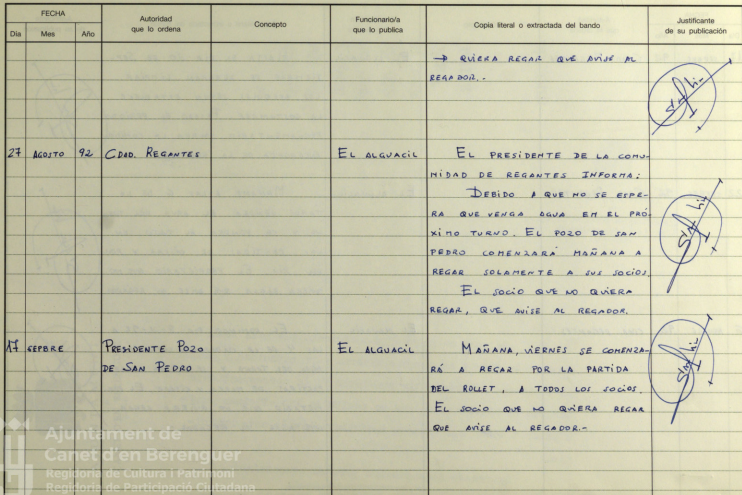 FECHA
Día Mes Año
Autoridad
que lo ordena
Concepto
Funcionario/a
que lo publica
Copia literal o extractada del bando
Justificante
de su publicación
→ QUIERA REGAR QUE AVISE AL
REGADOR.-
27 AGOSTO 92 CDAD. REGANTES EL ALGUACIL EL PRESIDENTE DE LA COMU-
NIDAD DE REGANTES INFORMA:
DEBIDO A QUE NO SE ESPE-
RA QUE VENGA AGUA EN EL PRÓ-
XIMO TURNO. EL POZO DE SAN
PEDRO COMENZARÁ MAÑANA A
REGAR SOLAMENTE A SUS SOCIOS.
EL SOCIO QUE NO QUIERA
REGAR, QUE AVISE AL REGADOR.
17 SEPBRE PRESIDENTE POZO EL ALGUACIL MAÑANA, VIERNES SE COMENZA-
DE SAN PEDRO RÁ A REGAR POR LA PARTIDA
DEL ROLLET, A TODOS LOS SOCIOS.
EL SOCIO QUE NO QUIERA REGAR
QUE AVISE AL REGADOR.-
Ajuntament de
Canet d'en Berenguer
Regidoria de Cultura i Patrimoni
Regidoria de Participació Ciutadana